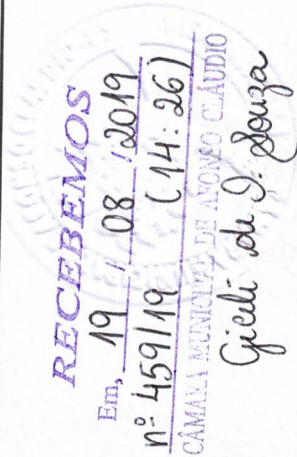 RECEBEMOS
Em, 19 / 08 / 2019
nº 459/19 (14:26)
CÂMARA MUNICIPAL DE AFONSO CLÁUDIO
Giceli de D. Souza